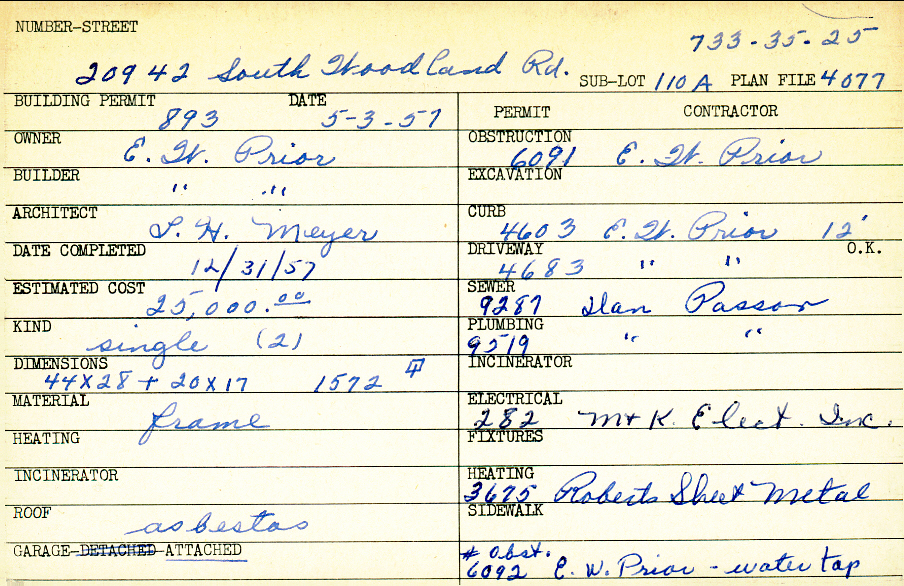 NUMBER-STREET
733-35-25
20942 South Woodland Rd. SUB-LOT 110A PLAN FILE 4077
BUILDING PERMIT DATE
893 5-3-57
OWNER
E. W. Prior
BUILDER
" "
ARCHITECT
L. H. Meyer
DATE COMPLETED
12/31/57
ESTIMATED COST
25,000.00
KIND
single (2)
DIMENSIONS
44X28 + 20X17 1572
MATERIAL
frame
HEATING
INCINERATOR
ROOF
asbestos
GARAGE-DETACHED-ATTACHED
PERMIT CONTRACTOR
OBSTRUCTION
6091 E. W. Prior
EXCAVATION
CURB
4603 E. W. Prior 12'
DRIVEWAY O.K.
4683 " "
SEWER
9287 Dan Passow
PLUMBING
9519 " "
INCINERATOR
ELECTRICAL
282 M+K. Elect. Inc.
FIXTURES
HEATING
3675 Roberts Sheet Metal
SIDEWALK
# Obst.
6092 E. W. Prior - water tap